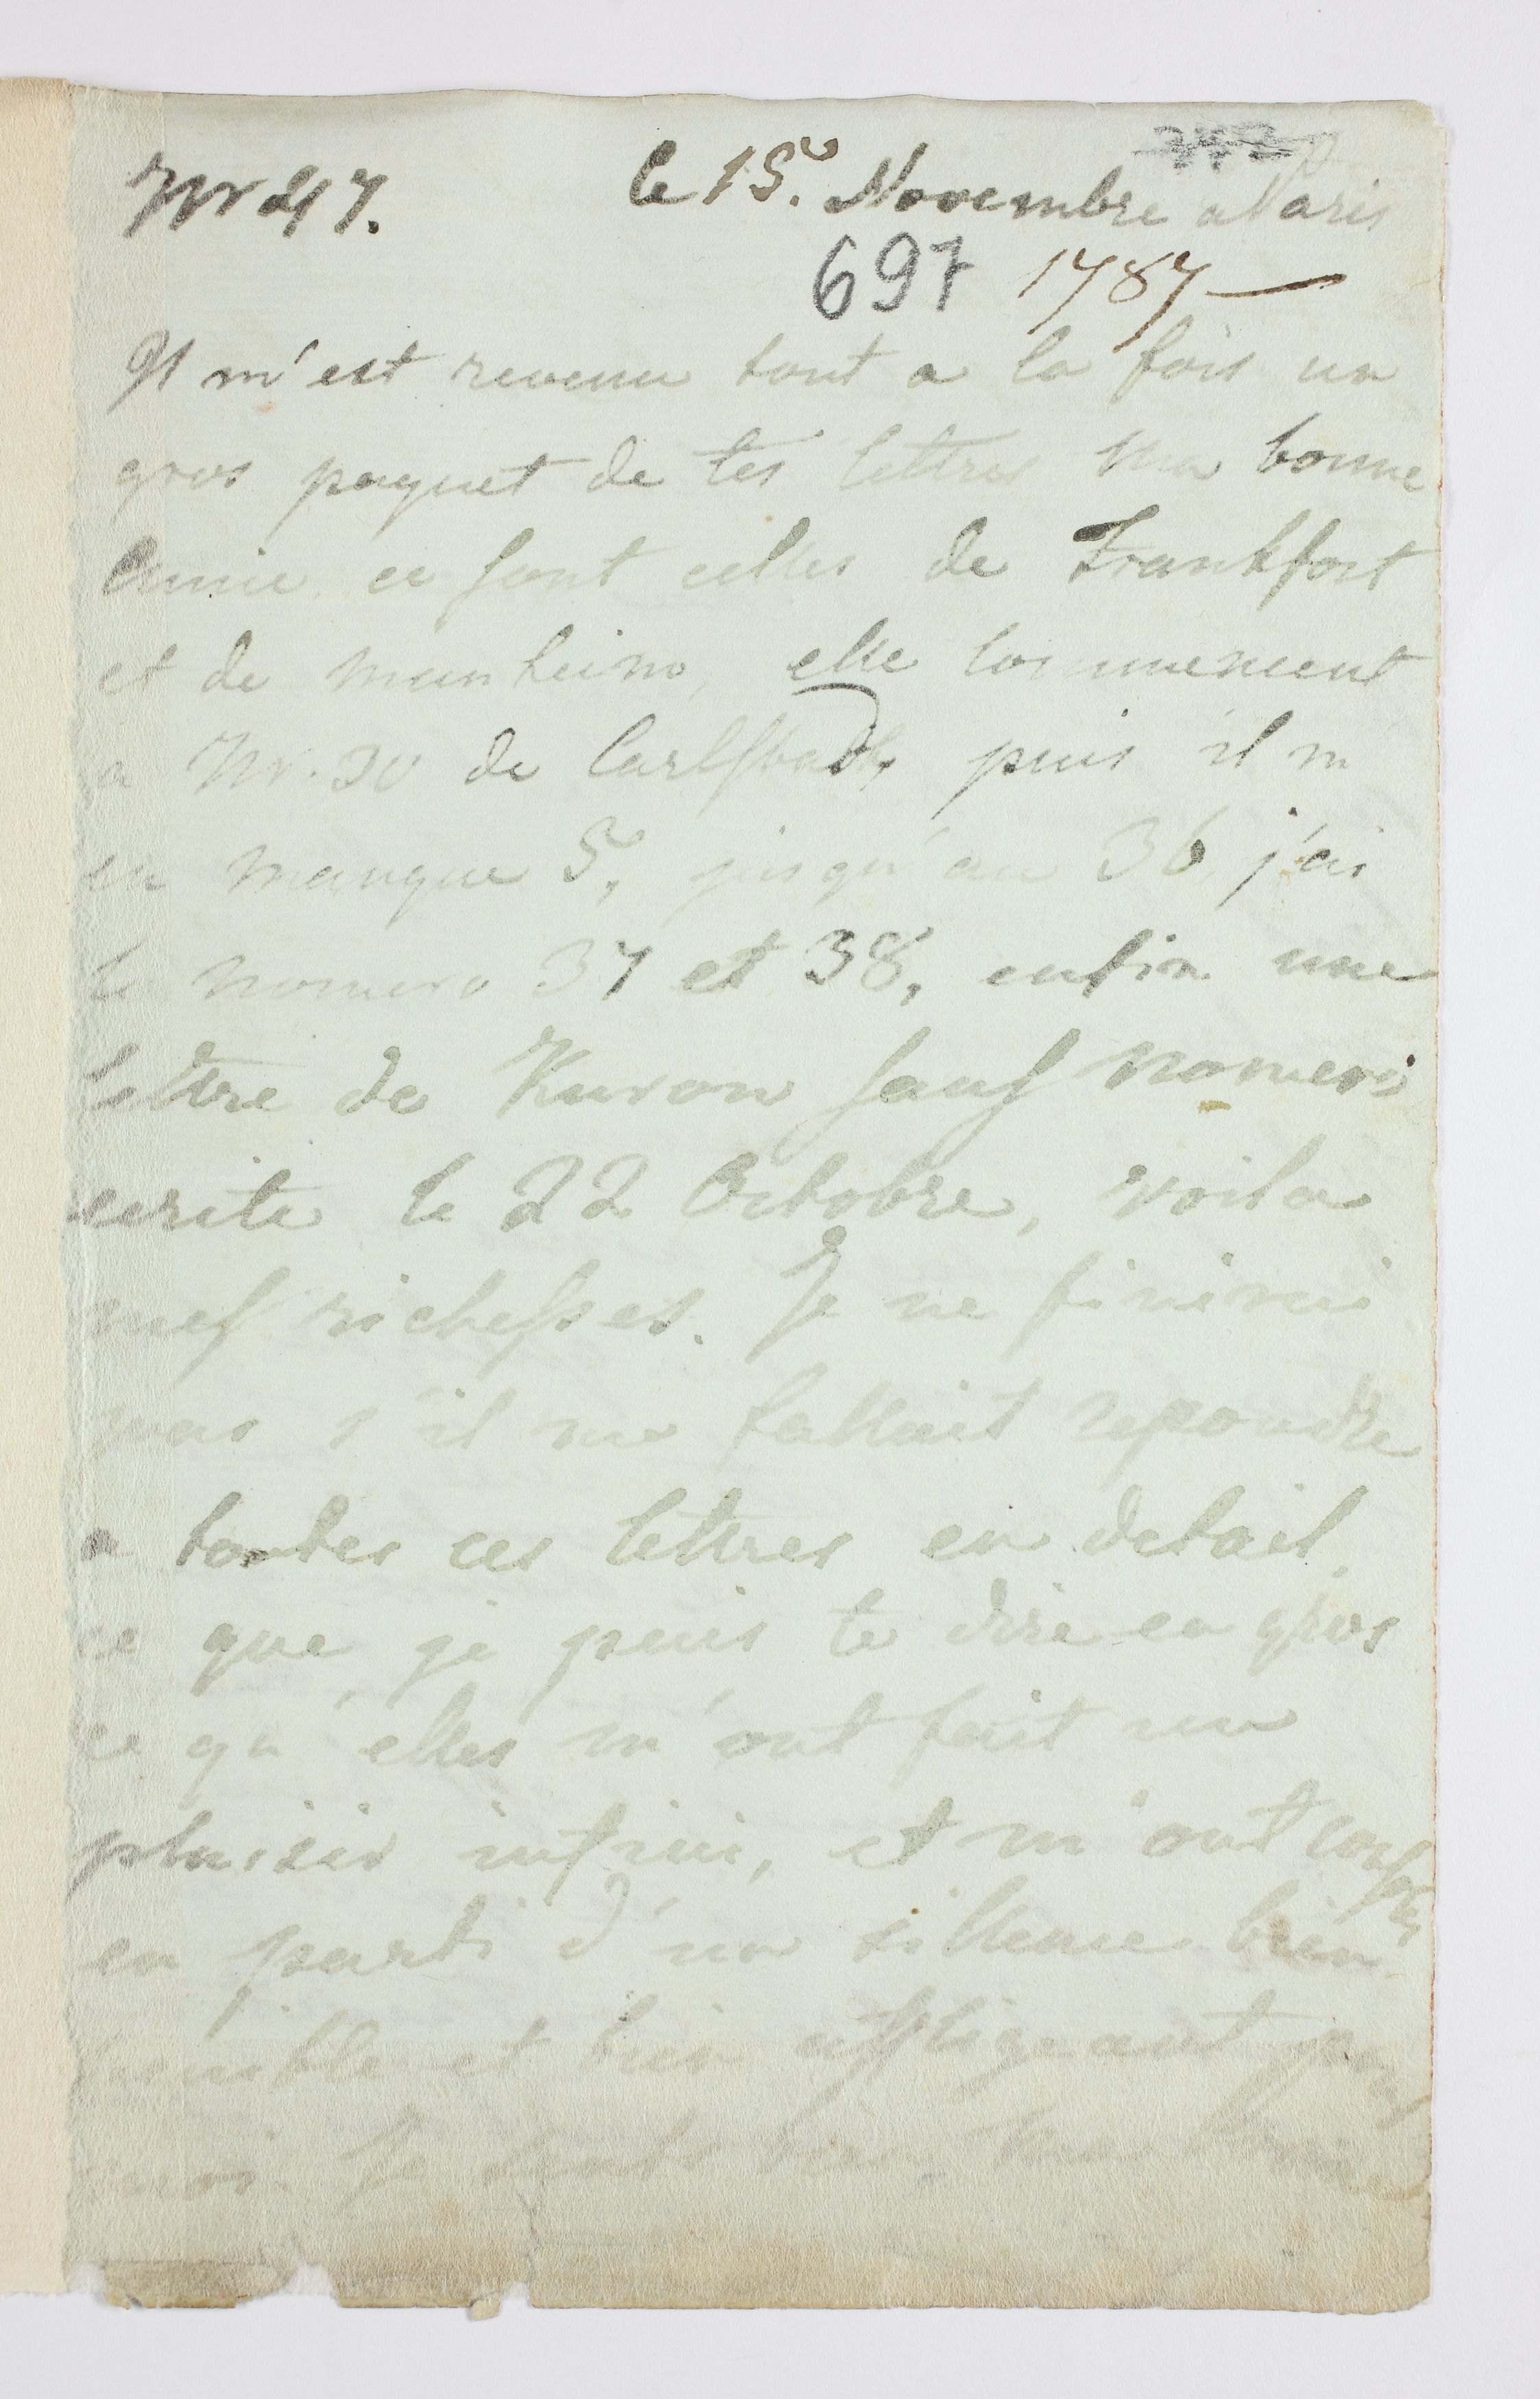 Nr 47. le 15. Novembre a Paris
697 1787 —
Il m'est revenu tout a la fois un
gros paquet de tes lettres ma bonne
Amie ce sont celles de Frankfort
et de Manheim, elle commencent
a Nr. 30 de Carlsbad, puis il m
en manque 5, jusqu'au 36, j'ai
le nomero 37 et 38, enfin une
lettre de Kuron sauf nomero
ecrite le 22 Octobre, voila
mes richesses. Je ne finirai
pas s'il me fallait repondre
a toutes ces lettres en detail,
ce que je puis te dire en gros
ce qu'elles m'ont fait un
plaisir infini, et m'ont consolés
en parti d'un sillence bien
penible et bien affligeant pour
moi. Je